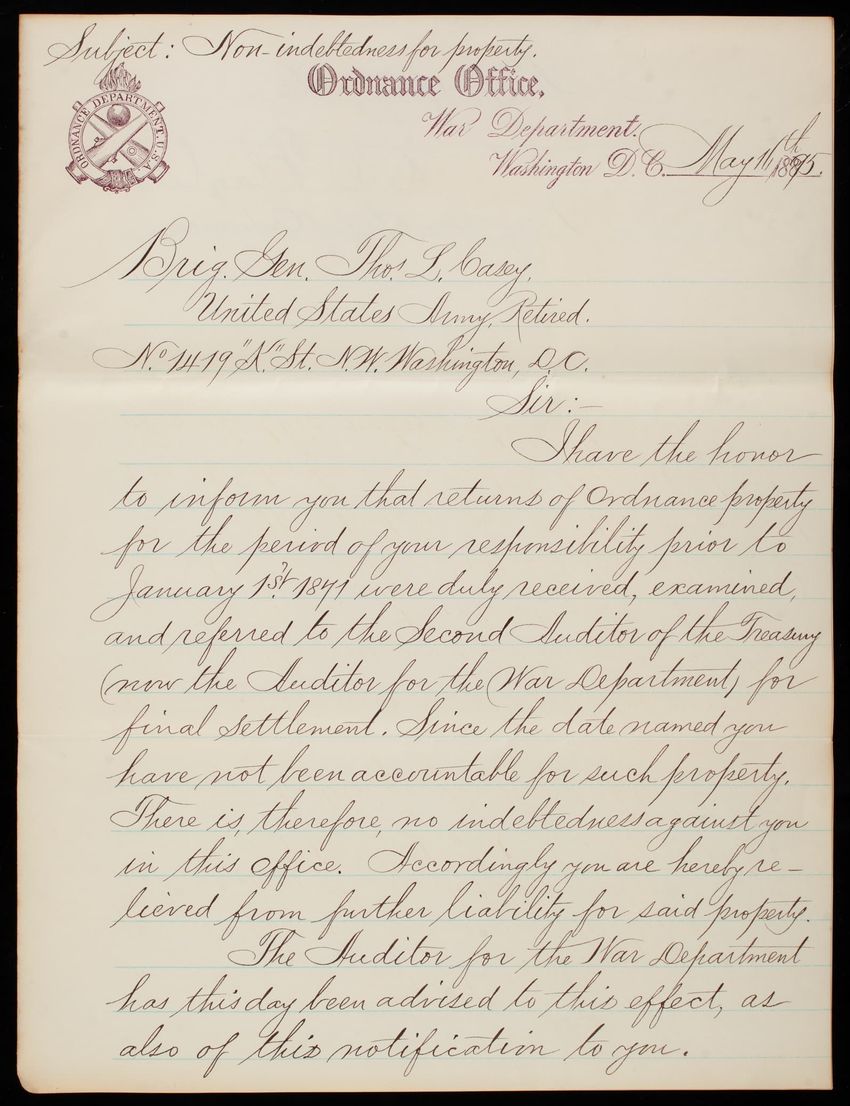 Subject: Non-indebtedness for property.
Ordnance Office,
War Department.
Washington D.C. May 11th 1895.
ORDNANCE DEPARTMENT. U.S.A.
Brig. Gen. Thos. L. Casey,
United States Army, Retired.
No. 1419 "K." St. N.W. Washington, D.C.
Sir:-
I have the honor
to inform you that returns of Ordnance property
for the period of your responsibility prior to
January 1st. 1871 were duly received, examined,
and referred to the Second Auditor of the Treasury
(now the Auditor for the War Department) for
final settlement. Since the date named you
have not been accountable for such property.
There is, therefore, no indebtedness against you
in this office. Accordingly you are hereby re-
lieved from further liability for said property.
The Auditor for the War Department
has this day been advised to this effect, as
also of this notification to you.